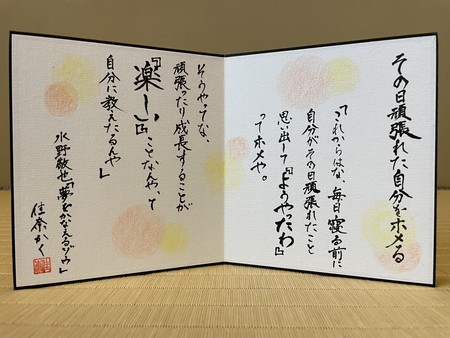 その日頑張れた自分をホメる
「これからはな、毎日寝る前に
自分がその日頑張れたこと
思い出して『ようやったわ』
ってホメや。
そうやってな、
頑張ったり成長することが
『楽しい』ことなんや、って
自分に教えたるんや」
水野敬也「夢をかなえるゾウ」
佳奈かく